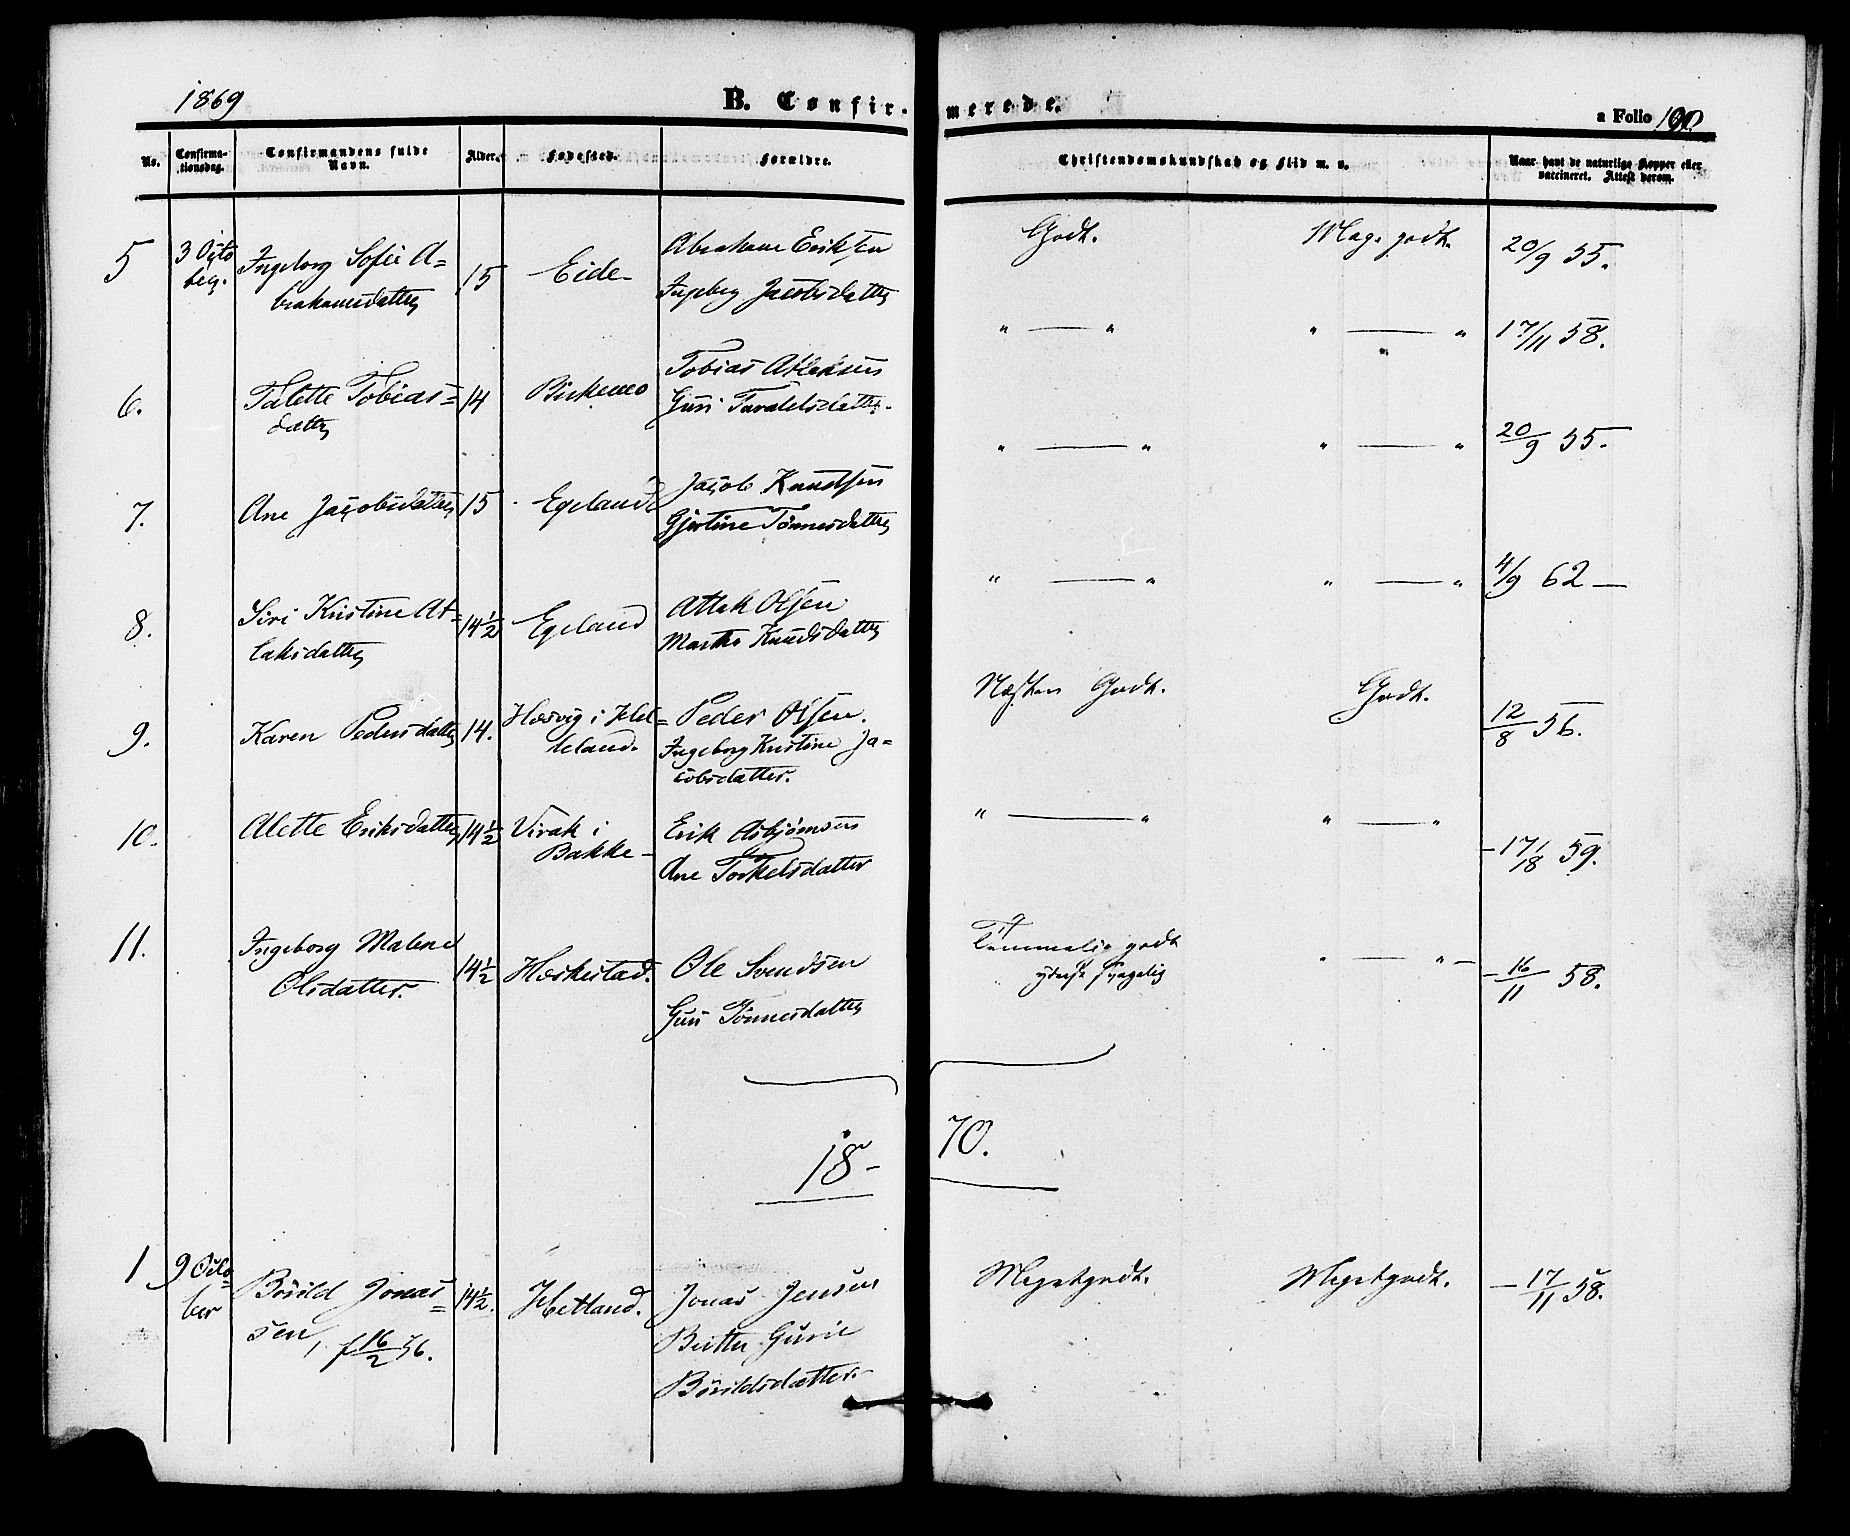 1869
B. Confir- merede.
a Folio 100
No. Confirma-
tionsdag. Confirmandens fulde
Navn. Alder. Fødested. Forældre. Christendomskundskab og Flid m. v. Naar havt de naturlige Kopper eller
vaccineret. Attest derom.
5 3 Octo
ber. Ingeborg Sofie A=
brahamsdatter 15 Eide Abraham Eriksen
Ingeborg Jacobsdatter Godt. Meg. godt. 20/9 55.
6. Talette Tobias=
datter 14 Birkemo Tobias Atlaksen
Guri Taraldsdatter. " — " " — " 17/11 58.
7. Ane Jacobsdatter 15 Egeland Jacob Knudsen
Gjertine Tønnesdatter " — " " — " 20/9 55.
8. Siri Kristine At=
laksdatter 14½ Egeland Atlak Olsen
Marthe Knudsdatter " — " " — " 4/9 62 —
9. Karen Pedersdatter 14. i Hel=
leland. Peder Olsen.
Ingeborg Kristine Ja=
cobsdatter. Næsten Godt. Godt. 12/8 56.
10. Alette Eriksdatter 14½ Virak i
Bakke Erik Asbjørnsen
Ane Torkelsdatter " — " " — " 17/8 59.
11. Ingeborg Malene
Olsdatter. 14½ Heskestad. Ole Svendsen
Guri Tønnesdatter Temmelig godt
yderst svagelig " — " 16/11 58.
18- 70.
1 9 Octo=
ber Börild Jonas=
sen, f 16/2 56. 14½. Hetland. Jonas Jensen
Berthe Gurie
Börildsdatter. Megetgodt. Megetgodt. 17/11 58.